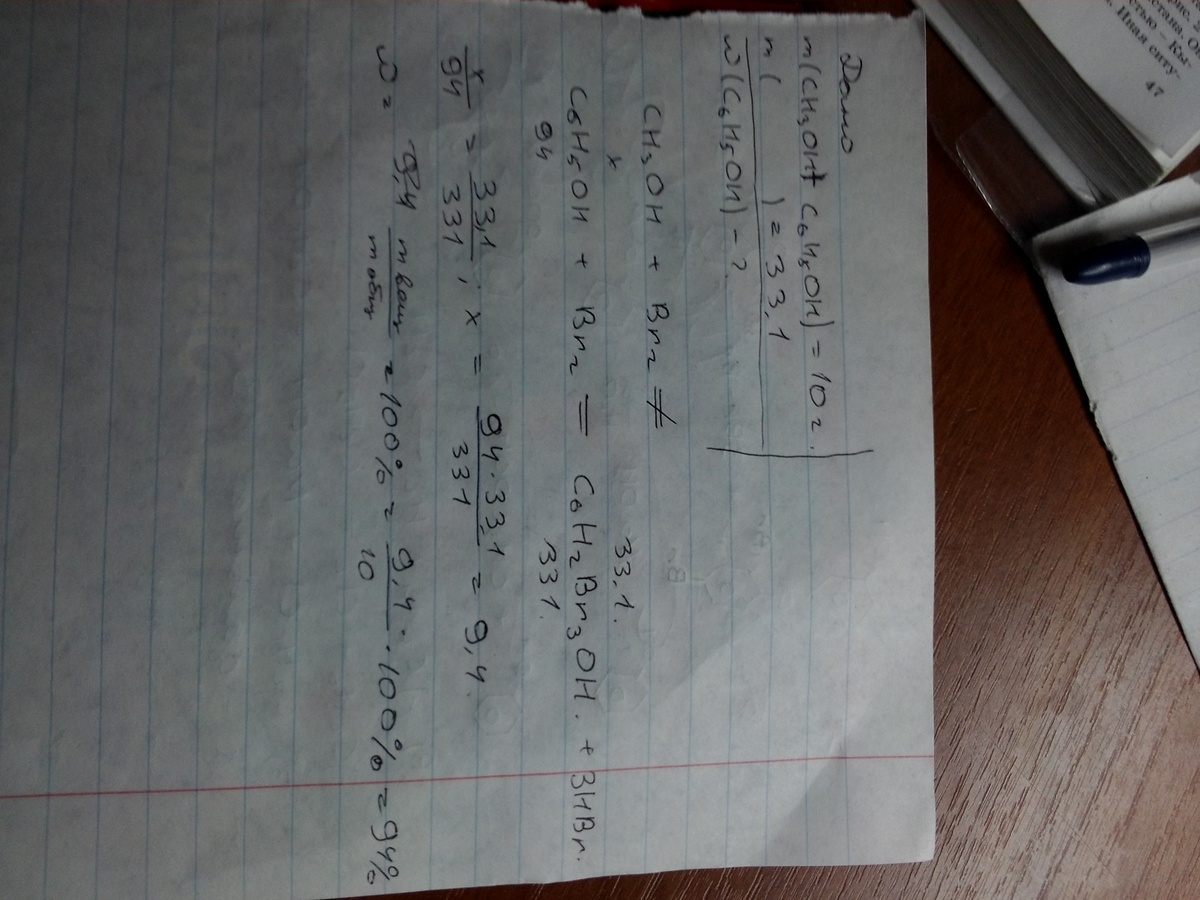 Дано
m(CH₃OH + C₆H₅OH) = 10 г.
m(        ) = 33,1
ω(C₆H₅OH) - ?
CH₃OH + Br₂ ≠
x 33,1.
C₆H₅OH + Br₂ = C₆H₂Br₃OH. + 3HBr.
94 331.
x/94 = 33,1/331; x = 94·33,1/331 = 9,4.
ω = m вещ/m общ = 100% = 9,4/10 · 100% = 94%
рис. 2
стана. Ол
стью – Кы-
Иная ситу-
47